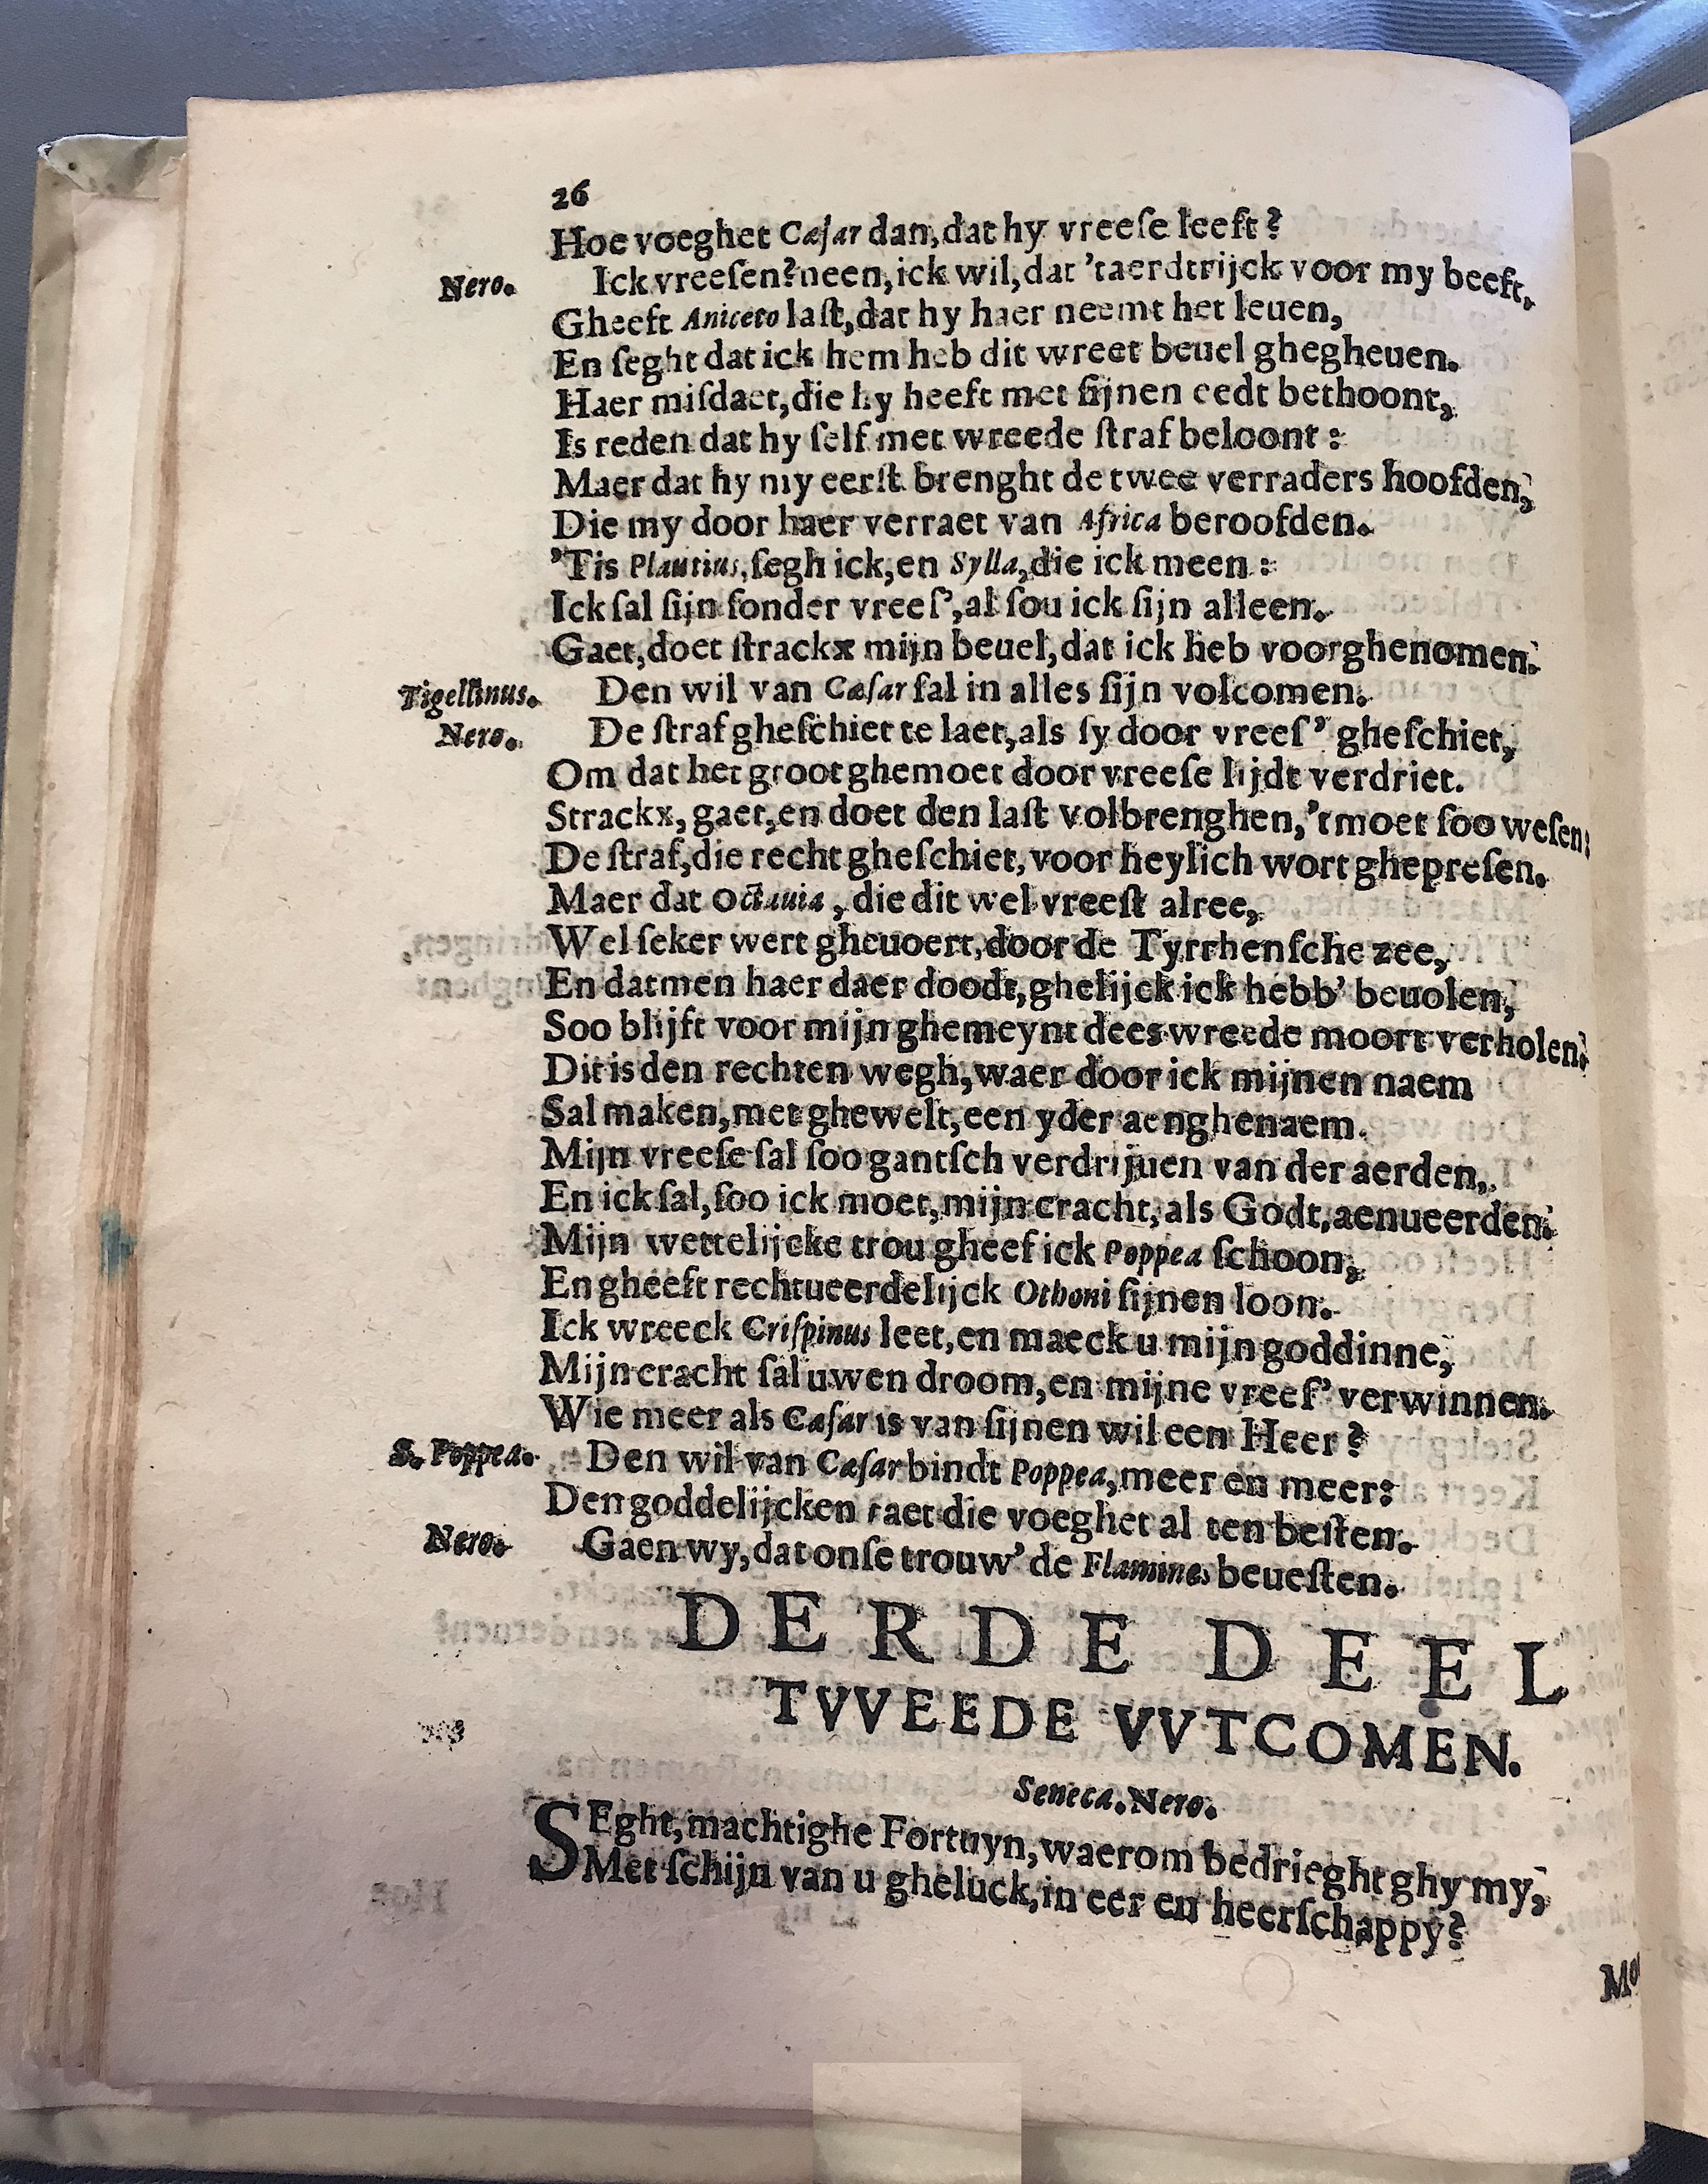 26
Hoe voeghet Cæſar dan, dat hy vreeſe leeft?
Nero. Ick vreeſen? neen, ick wil, dat 'taerdtrijck voor my beeft,
Gheeft Aniceto laſt, dat hy haer neemt het leuen,
En ſeght dat ick hem heb dit wreet beuel ghegheuen.
Haer miſdaet, die hy heeft met ſijnen eedt bethoont,
Is reden dat hy ſelf met wreede ſtraf beloont:
Maer dat hy my eerſt brenght de twee verraders hoofden,
Die my door haer verraet van Africa beroofden.
'Tis Plautius, ſegh ick, en Sylla, die ick meen:
Ick ſal ſijn ſonder vreeſ', al ſou ick ſijn alleen.
Gaet, doet ſtrackx mijn beuel, dat ick heb voorghenomen.
Tigellinus. Den wil van Cæſar ſal in alles ſijn volcomen.
Nero. De ſtraf gheſchiet te laet, als ſy door vreeſ' gheſchiet,
Om dat het groot ghemoet door vreeſe lijdt verdriet.
Strackx, gaet, en doet den laſt volbrenghen, 'tmoet ſoo weſen:
De ſtraf, die recht gheſchiet, voor heylich wort ghepreſen.
Maer dat Octauia, die dit wel vreeſt alree,
Wel ſeker wert gheuoert, door de Tyrrhenſche zee,
En datmen haer daer doodt, ghelijck ick hebb' beuolen,
Soo blijft voor mijn ghemeynt dees wreede moort verholen.
Dit is den rechten wegh, waer door ick mijnen naem
Sal maken, met ghewelt, een yder aenghenaem.
Mijn vreeſe ſal ſoo gantſch verdrijuen van der aerden,
En ick ſal, ſoo ick moet, mijn cracht, als Godt, aenueerden.
Mijn wettelijcke trou gheef ick Poppea ſchoon,
En gheeft rechtueerdelijck Othoni ſijnen loon.
Ick wreeck Criſpinus leet, en maeck u mijn goddinne,
Mijn cracht ſal uwen droom, en mijne vreeſ' verwinnen.
Wie meer als Cæſar is van ſijnen wil een Heer?
S. Poppea. Den wil van Cæſar bindt Poppea, meer en meer:
Den goddelijcken raet die voeghet al ten beſten.
Nero. Gaen wy, dat onſe trouw' de Flamines beueſten.
DERDE DEEL
TVVEEDE VVTCOMEN.
Seneca. Nero.
SEght, machtighe Fortuyn, waerom bedrieght ghy my,
Met ſchijn van u gheluck, in eer en heerſchappy?